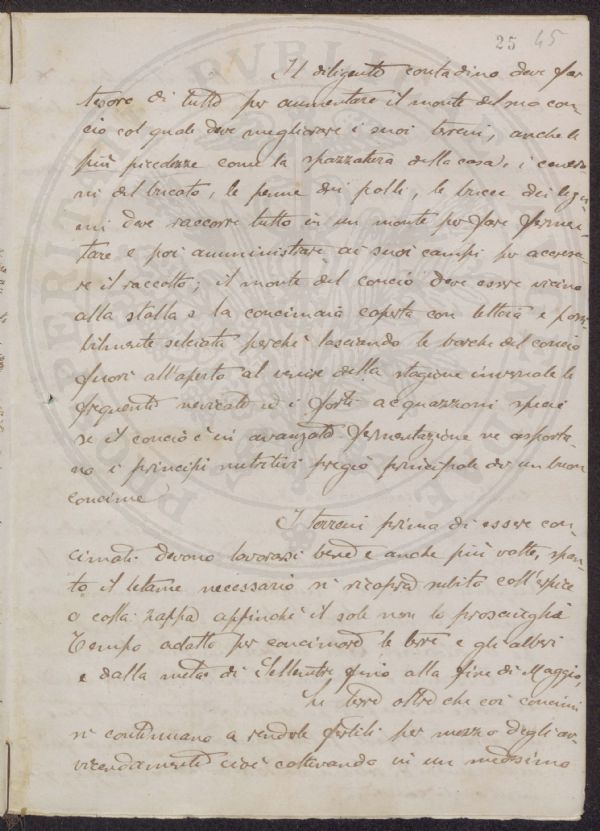 25 45
Il diligente contadino deve far
tesoro di tutto per aumentare il monte del suo con-
cio col quale deve migliorare i suoi terreni, anche le
più piccolezze come la spazzatura della casa, i cenera-
ni del bucato, le penne dei polli, le bucce dei legu-
mi deve raccorre tutto in un monte per fare fermen-
tare e poi amministrare ai suoi campi per accresce-
re il raccolto; il monte del concio deve essere vicino
alla stalla e la concimaia coperta con tettoia e possi-
bilmente selciata perché lasciando le barche del concio
fuori all'aperto al venire della stagione invernale le
frequenti nevicate ed i forti acquazzoni specie
se il concio è in avanzata fermentazione ne asporta-
no i principi nutritivi pregio principale di un buon
concime
I terreni prima di essere con-
cimati devono lavorarsi bene e anche più volte, span-
to il letame necessario si ricopra subito coll'erpice
o colla zappa affinché il sole non lo prosciughi
Tempo adatto per concimare le terre e gli alberi
e dalla metà di Settembre fino alla fine di Maggio,
Le terre oltre che coi concimi
si continuano a renderle fertili per mezzo degli av-
vicendamenti cioè coltivando in un medesimo
PROSPERITATI PUBLICAE AUGENDAE